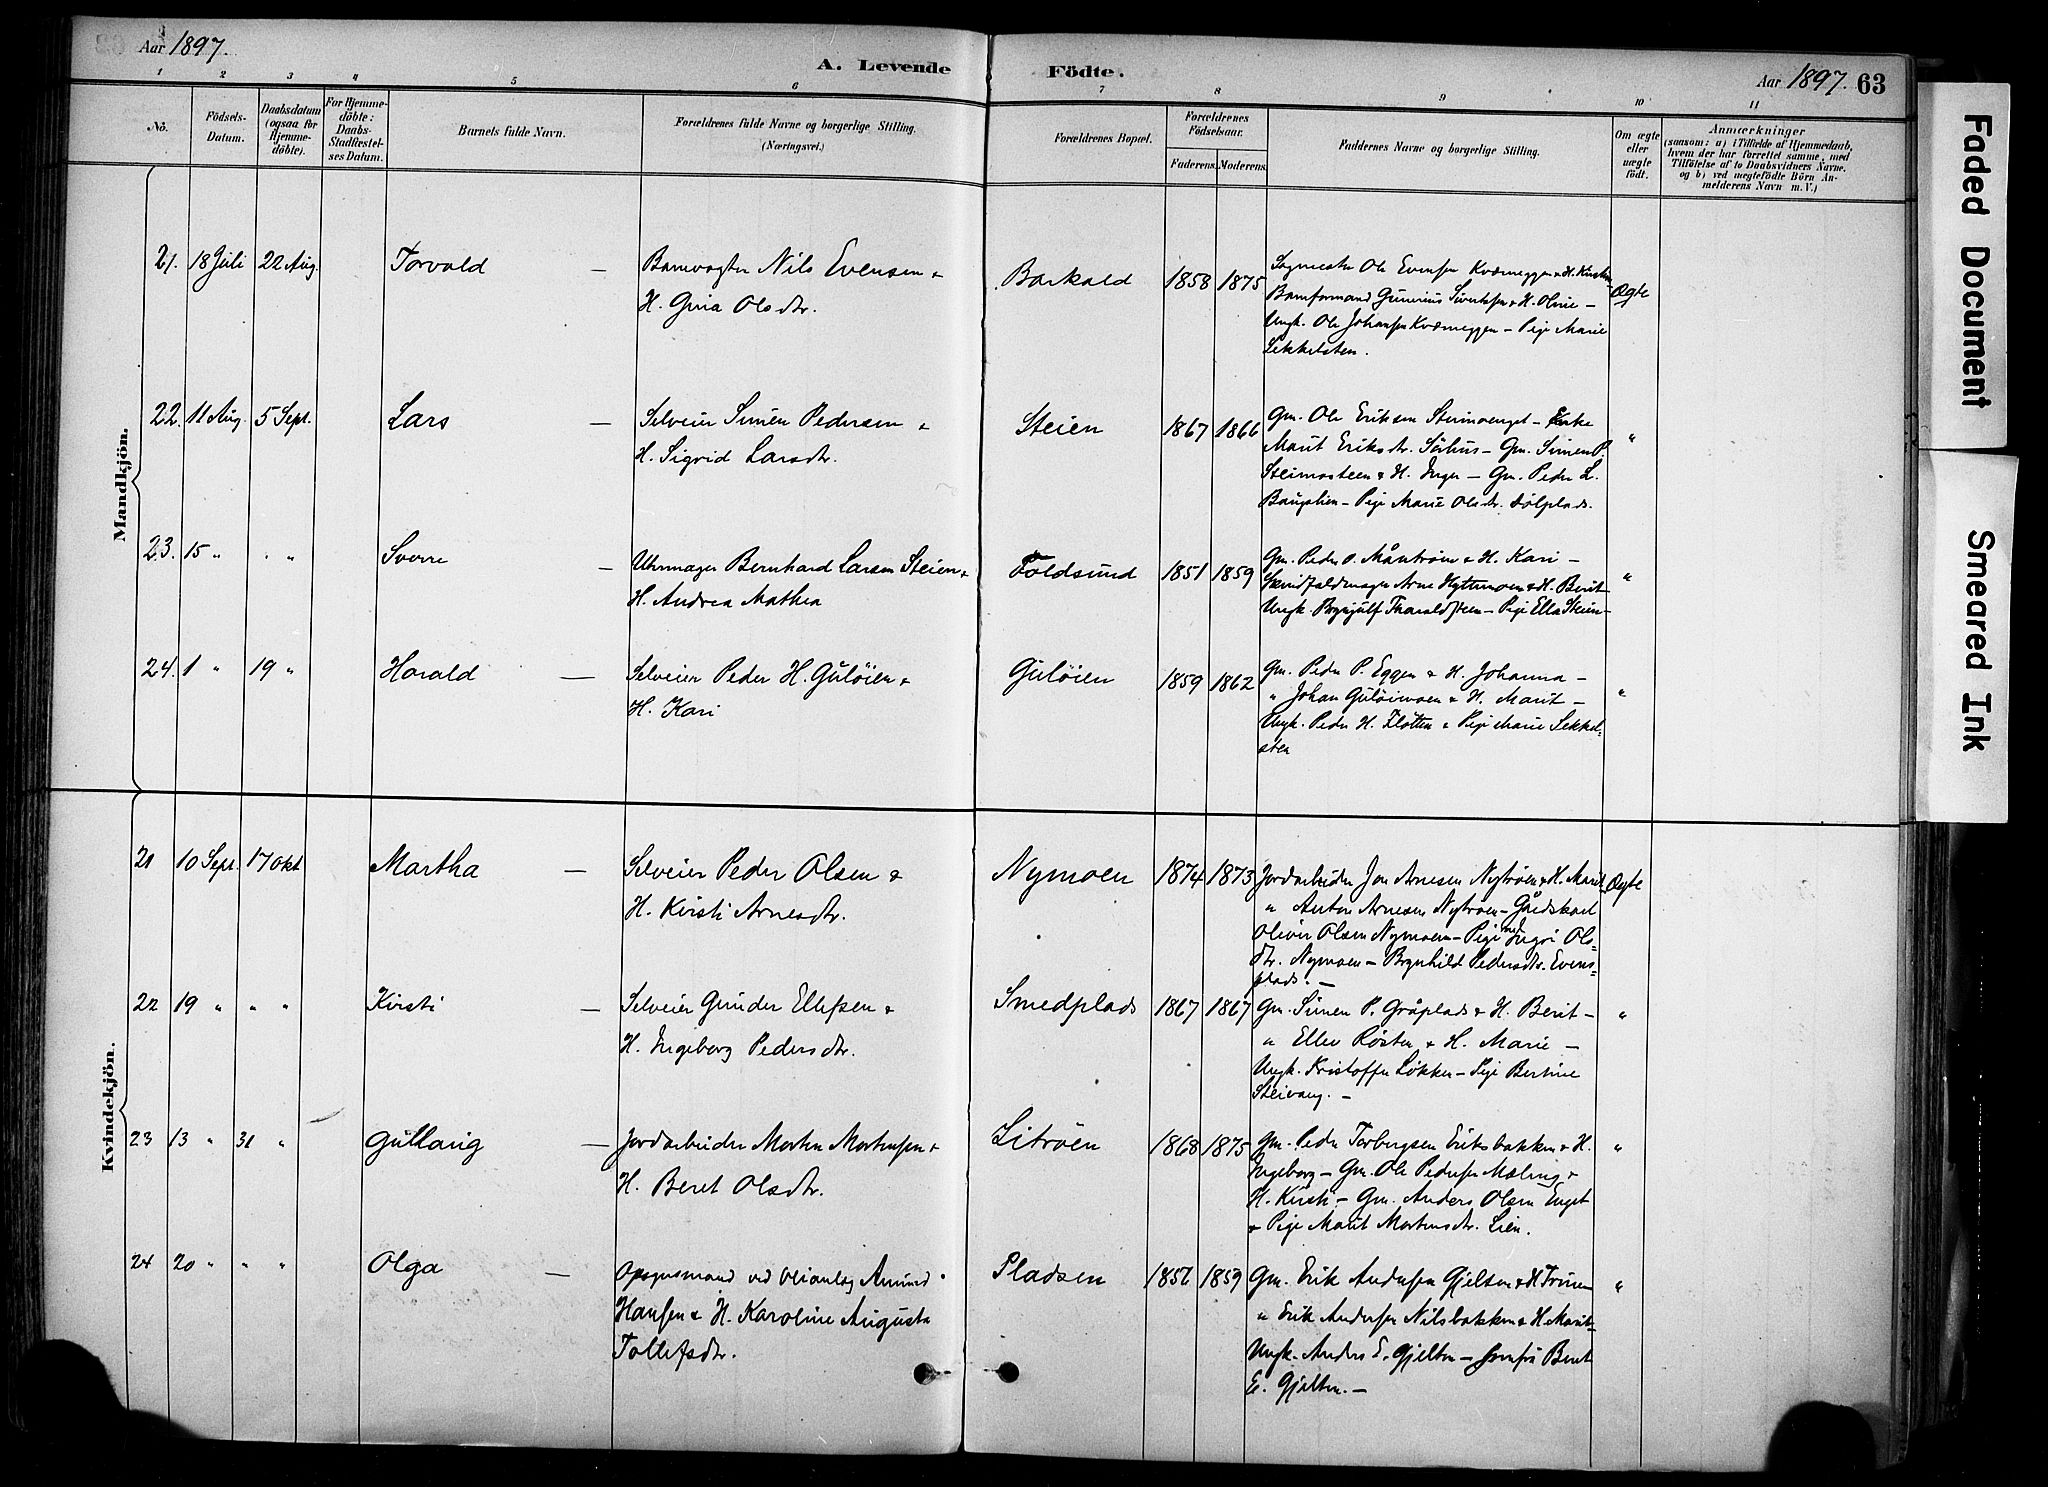 Aar 1897.
A. Levende Födte.
Aar 1897. 63
1 2 3 4 5 6 7 8 9 10 11
No.
Födsels-
Datum.
Daabsdatum
(ogsaa for
Hjemme-
döbte).
For Hjemme-
döbte:
Daabs-
Stadfæstel-
ses Datum.
Barnets fulde Navn.
Forældrenes fulde Navne og borgerlige Stilling.
(Næringsvei.)
Forældrenes Bopæl.
Forældrenes
Födselsaar.
Faderens. Moderens.
Faddernes Navne og borgerlige Stilling.
Om ægte
eller
uægte
födt.
Anmærkninger
(saasom: a) i Tilfælde af Hjemmedaab,
hvem der har forrettet samme, med
Tilföielse af to Daabsvidners Navne,
og b) ved uægtefödte Börn An-
melderens Navn m. V.)
Mandkjön.
21. 18 Juli 22 Aug. Torvald — Banevogter Nils Evensen &
H. Gina Olsdtr.
Barkald 1858 1875
Ole Evensen Kværneggen & H. Kirsti
Baneformand Gunerius Sivertsen & H. Oline —
Ungk. Ole Johansen Kværneggen — Pige Marie
Sekkelsten.
Ægte
22. 11 Aug. 5 Sept. Lars — Selveier Simen Pedersen &
H. Sigrid Larsdtr.
Steien 1867 1866
Gm. Ole Eriksen Steimoenget — Enke
Marit Eriksdtr. — Gm. Simen P.
Steimosteen & H. Inger — Gm. Peder L.
Bangslien — Pige Marie Olsdtr. Sölplads.
"
23. 15 " " " Sverre — Uhrmager Bernhard Larsen Steien &
H. Andrea Mathea
Foldsund 1851 1859
Gm. Peder O. Måntrøen & H. Kari —
Arne Hyttemoen & H. Berit
Ungk. Brynjulf Tharaldsteen — Pige Ella Steien —
"
24. 1 " 19 " Harald — Selveier Peder H. Guløien &
H. Kari
Guløien 1859 1862
Gm. Peder P. Eggen & H. Johanna —
" Johan Guløimoen & H. Marit —
Ungk. Peder H. Fløtten & Pige Marie Sekkel-
sten
"
Kvindekjön.
21 10 Sept. 17 Okt Martha — Selveier Peder Olsen &
H. Kirsti Arnesdtr.
Nymoen 1874 1873
Jordarbeider Jon Arnesen Nytrøen & H. Marit
" Anton Arnesen Nytrøen — Gårdskarl
Oliver Olsen Nymoen — Pige Ingri Ols-
dtr. Nymoen — Brynhild Pedersdtr. Evens-
plads. —
Ægte
22 19 " " " Kirsti — Selveier Gunder Ellefsen &
H. Ingeborg Pedersdtr.
Smedplads 1867 1867
Gm. Simen P. Gråplads & H. Berit —
" Ellev Røsten & H. Marie —
Ungk. Kristoffer Løkken — Pige Bertine
Steivang. —
"
23 13 " 31 " Gullaug — Jordarbeider Morten Mortensen &
H. Beret Olsdtr.
Litrøen 1868 1875
Gm. Peder Torbergsen Eriksbakken & H.
Ingeborg — Gm. Ole Pedersen Mæling &
H. Kirsti — Gm. Anders Olsen Enget
& Pige Marit Mortensdtr. Lien.
"
24 20 " " " Olga — Opsynsmand ved Veianlæg Amund
Hansen & H. Karoline Augusta
Tollefsdtr.
Pladsen 1856 1859
Gm. Erik Andersen Gjelten & H. Trinen
" Erik Andersen Nilsbakken & H. Marit —
Ungk. Anders E. Gjelten — Jomfru Berit
E. Gjelten. —
"
Faded Document
Smeared Ink